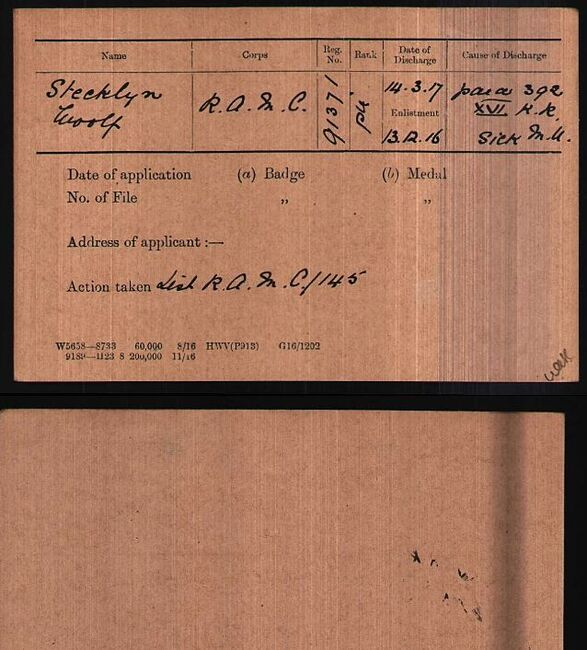 Name Corps Reg. No. Rank Date of Discharge Cause of Discharge
Stecklyn
Woolf
R.A.M.C.
91371
Pte
14.3.17
Enlistment
13.12.16
para 392
XVI K.R.
Sick
Date of application (a) Badge (b) Medal
No. of File „ „
Address of applicant :—
Action taken List R.A.M.C/145
W5658—8733 60,000 8/16 HWV(P913) G16/1202
9189—1123 8 200,000 11/16